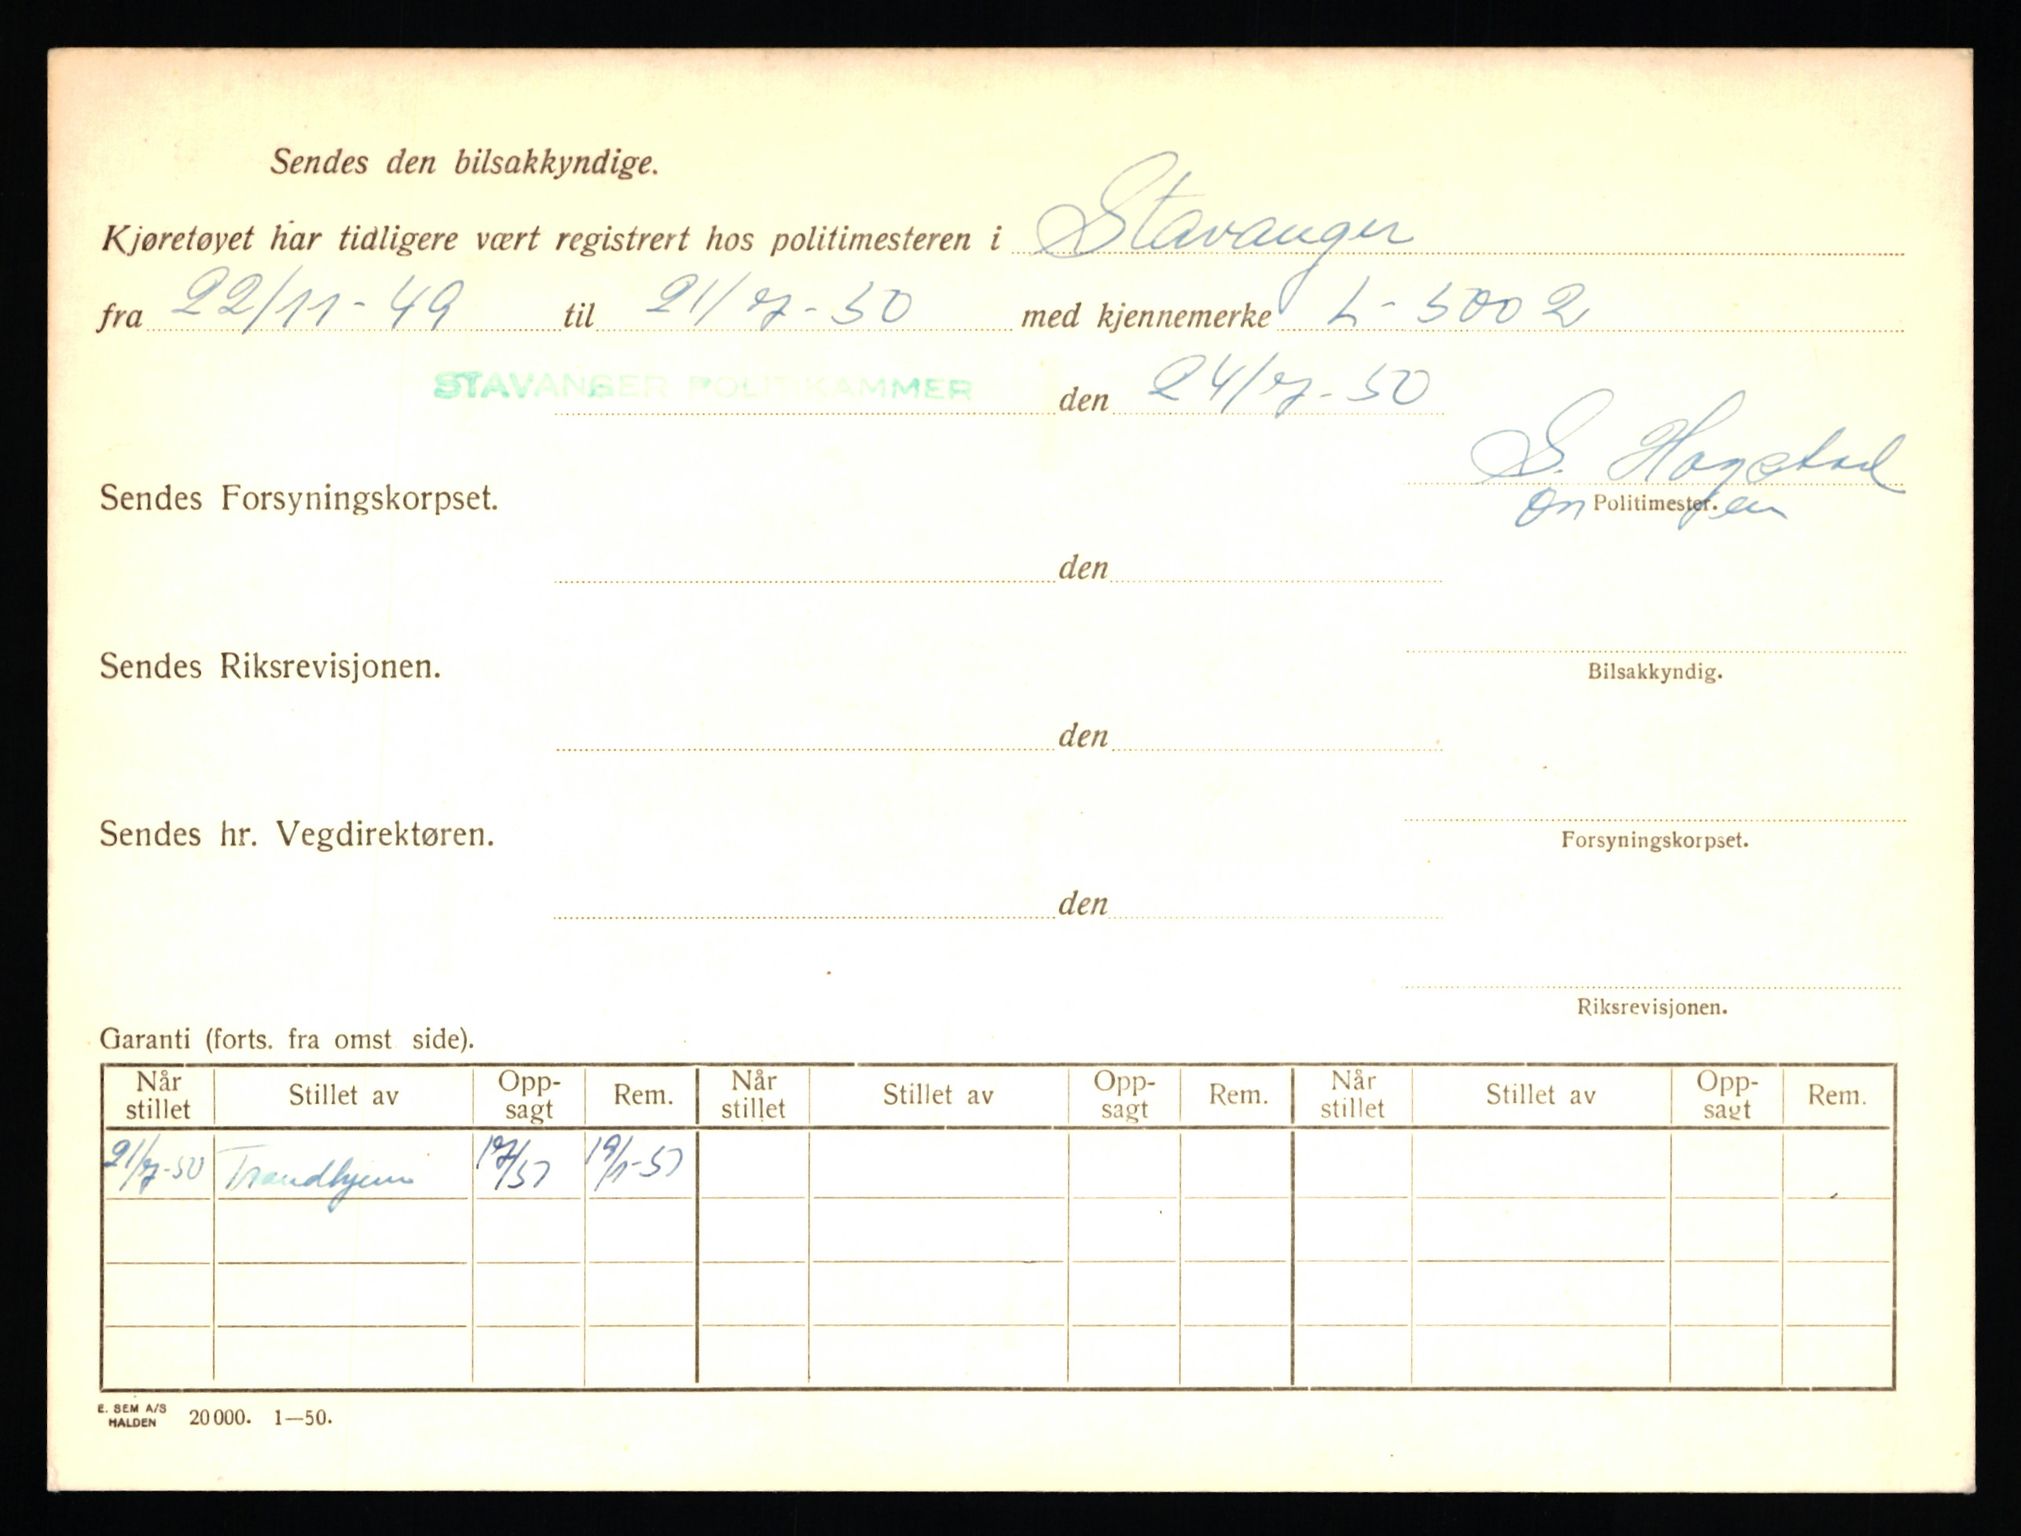 Sendes den bilsakkyndige.
Kjøretøyet har tidligere vært registrert hos politimesteren i Stavanger
fra 22/11-49 til 21/7-50 med kjennemerke L-5002
STAVANGER POLITIKAMMER den 24/7-50
S. Hogstad
Sendes Forsyningskorpset.
Politimester.
den
Sendes Riksrevisjonen.
Bilsakkyndig.
den
Sendes hr. Vegdirektøren.
Forsyningskorpset.
den
Riksrevisjonen.
Garanti (forts. fra omst side).
Når stillet Stillet av Opp-sagt Rem. Når stillet Stillet av Opp-sagt Rem. Når stillet Stillet av Opp-sagt Rem.
21/7-50 Trondhjem 19/1-51
E. SEM A/S
HALDEN 20000. 1—50.